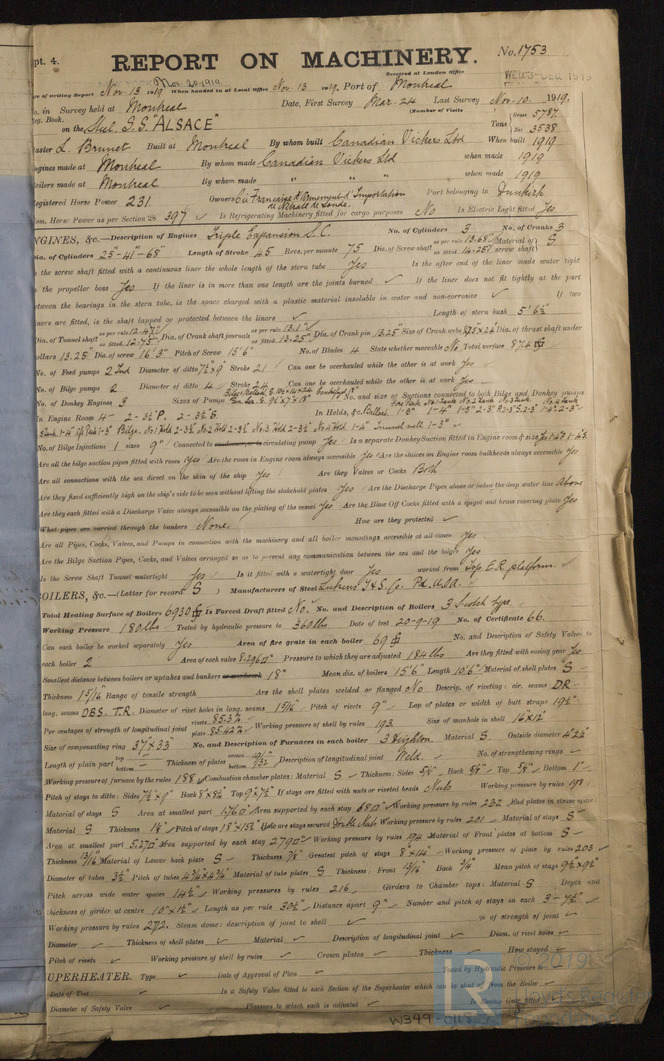 pt. 4.
REPORT ON MACHINERY.
No. 1753
Nov. 20 1919
Received at London Office WED. 3 - DEC. 1919
of writing Report Nov. 13 1919 When handed in at Local Office Nov. 13 1919. Port of Montreal
No. in Survey held at Montreal Date, First Survey Mar. 24 Last Survey Nov. 10. 1919.
Reg. Book. (Number of Visits
on the Steel S.S. "ALSACE" Tons Gross 5787. Net 3538
Master L. Brunet Built at Montreal By whom built Canadian Vickers Ltd When built 1919
Engines made at Montreal By whom made Canadian Vickers Ltd when made 1919
Boilers made at Montreal By whom made " " " when made 1919
Registered Horse Power 231. Owners Port belonging to Dunkirk
Nom. Horse Power as per Section 28 397 Is Refrigerating Machinery fitted for cargo purposes No Is Electric Light fitted Yes
ENGINES, &c.—Description of Engines Triple Expansion S.C. No. of Cylinders 3 No. of Cranks 3
Dia. of Cylinders 25-41-68" Length of Stroke 45 Revs. per minute 75 Dia. of Screw shaft as per rule 13.68" as fitted 14.25" Material of screw shaft S.
Is the screw shaft fitted with a continuous liner the whole length of the stern tube Yes Is the after end of the liner made water tight
in the propeller boss Yes If the liner is in more than one length are the joints burned ✓ If the liner does not fit tightly at the part
between the bearings in the stern tube, is the space charged with a plastic material insoluble in water and non-corrosive ✓ If two
liners are fitted, is the shaft lapped or protected between the liners ✓ Length of stern bush 5' 6½"
Dia. of Tunnel shaft as per rule 12.47" as fitted 12.75" Dia. of Crank shaft journals as per rule 13.1" as fitted 13.25" Dia. of Crank pin 13.25" Size of Crank webs Dia. of thrust shaft under
collars 13.25" Dia. of screw 16' 3" Pitch of Screw 15' 6" No. of Blades 4 State whether moveable No Total surface
No. of Feed pumps 2 Diameter of ditto Stroke 21 Can one be overhauled while the other is at work Yes
No. of Bilge pumps 2 Diameter of ditto 4 Stroke 24 Can one be overhauled while the other is at work Yes
No. of Donkey Engines 3 Sizes of Pumps No. and size of Suctions connected to both Bilge and Donkey pumps
In Engine Room 4- 2-3½ P. 2-3½ S. In Holds, &c.
No. of Bilge Injections 1 sizes 9" Connected to circulating pump Yes Is a separate Donkey Suction fitted in Engine room & size
Are all the bilge suction pipes fitted with roses Yes Are the roses in Engine room always accessible Yes Are the sluices on Engine room bulkheads always accessible Yes
Are all connections with the sea direct on the skin of the ship Yes Are they Valves or Cocks Both
Are they fixed sufficiently high on the ship's side to be seen without lifting the stokehold plates Yes Are the Discharge Pipes above or below the deep water line Above
Are they each fitted with a Discharge Valve always accessible on the plating of the vessel Yes Are the Blow Off Cocks fitted with a spigot and brass covering plate Yes
What pipes are carried through the bunkers None. How are they protected ✓
Are all Pipes, Cocks, Valves, and Pumps in connection with the machinery and all boiler mountings accessible at all times Yes
Are the Bilge Suction Pipes, Cocks, and Valves arranged so as to prevent any communication between the sea and the bilges Yes
Is the Screw Shaft Tunnel watertight Yes Is it fitted with a watertight door Yes worked from Top E.R. platform.
BOILERS, &c.—(Letter for record S ) Manufacturers of Steel Lukens I. & S. Co. Pa. U.S.A.
Total Heating Surface of Boilers 6930 Is Forced Draft fitted No. No. and Description of Boilers 3 Scotch type
Working Pressure 180 lbs Tested by hydraulic pressure to 360 lbs Date of test 20-9-19 No. of Certificate 66.
Can each boiler be worked separately Yes Area of fire grate in each boiler 69 No. and Description of Safety Valves to
each boiler 2 Area of each valve Pressure to which they are adjusted 184 lbs Are they fitted with easing gear Yes
Smallest distance between boilers or uptakes and bunkers 18" Mean dia. of boilers 15' 6" Length 10' 6" Material of shell plates S
Thickness 1 5/16 Range of tensile strength Are the shell plates welded or flanged No Descrip. of riveting: cir. seams D R
long. seams DBS. T.R. Diameter of rivet holes in long. seams Pitch of rivets 9" Lap of plates or width of butt straps 19½"
Per centages of strength of longitudinal joint rivets 85.32 plate 85.42 Working pressure of shell by rules 193 Size of manhole in shell 16" x 12"
Size of compensating ring 37" x 33" No. and Description of Furnaces in each boiler 3 Deighton. Material S. Outside diameter
Length of plain part top ✓ bottom Thickness of plates crown bottom Description of longitudinal joint Weld. No. of strengthening rings ✓
Working pressure of furnace by the rules 188 Combustion chamber plates: Material S Thickness: Sides 5/8" Back 5/8" Top 5/8" Bottom 1"
Pitch of stays to ditto: Sides Back Top If stays are fitted with nuts or riveted heads Nuts Working pressure by rules
Material of stays S Area at smallest part 1.76 Area supported by each stay Working pressure by rules 232 End plates in steam space
Material S Thickness 1⅛" Pitch of stays How are stays secured Double Nuts Working pressure by rules 201 Material of stays S
Area at smallest part 5.27 Area supported by each stay 279 Working pressure by rules 196 Material of Front plates at bottom S
Thickness 13/16 Material of Lower back plate S Thickness Greatest pitch of stays Working pressure of plate by rules 203
Diameter of tubes 3½ Pitch of tubes Material of tube plates S Thickness: Front 13/16 Back 3/4 Mean pitch of stays
Pitch across wide water spaces 14½" Working pressures by rules 216. Girders to Chamber tops: Material S Depth and
thickness of girder at centre Length as per rule 30½ Distance apart 9" Number and pitch of stays in each 3-7½"
Working pressure by rules 272. Steam dome: description of joint to shell ✓ % of strength of joint ✓
Diameter ✓ Thickness of shell plates ✓ Material ✓ Description of longitudinal joint ✓ Diam. of rivet holes ✓
Pitch of rivets ✓ Working pressure of shell by rules ✓ Crown plates ✓ Thickness ✓ How stayed
SUPERHEATER. Type ✓ Date of Approval of Plan ✓ Tested by Hydraulic Pressure to
Date of Test Is a Safety Valve fitted to each Section of the Superheater which can be shut off from the Boiler
Diameter of Safety Valve ✓ Pressure to which each is adjusted ✓ Is Easing Gear fitted
W349-0118
© 2019
Lloyd's Register
Foundation